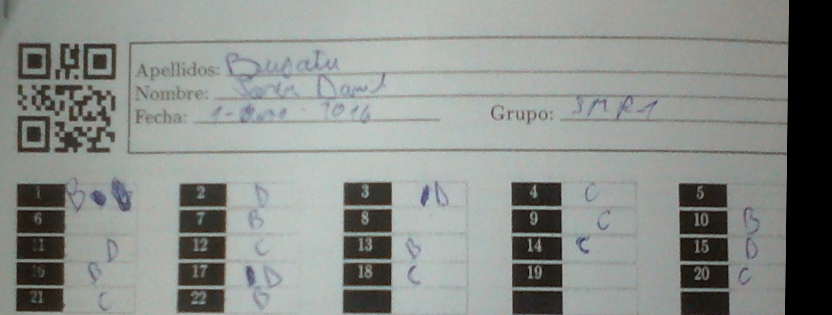 Apellidos: Busatu
Nombre:
Fecha: 1- 2016 Grupo: SMR1
1 B 2 D 3 D 4 C 5
6 7 B 8 9 C 10 B
11 D 12 C 13 B 14 C 15 D
16 B 17 D 18 C 19 20 C
21 C 22 B